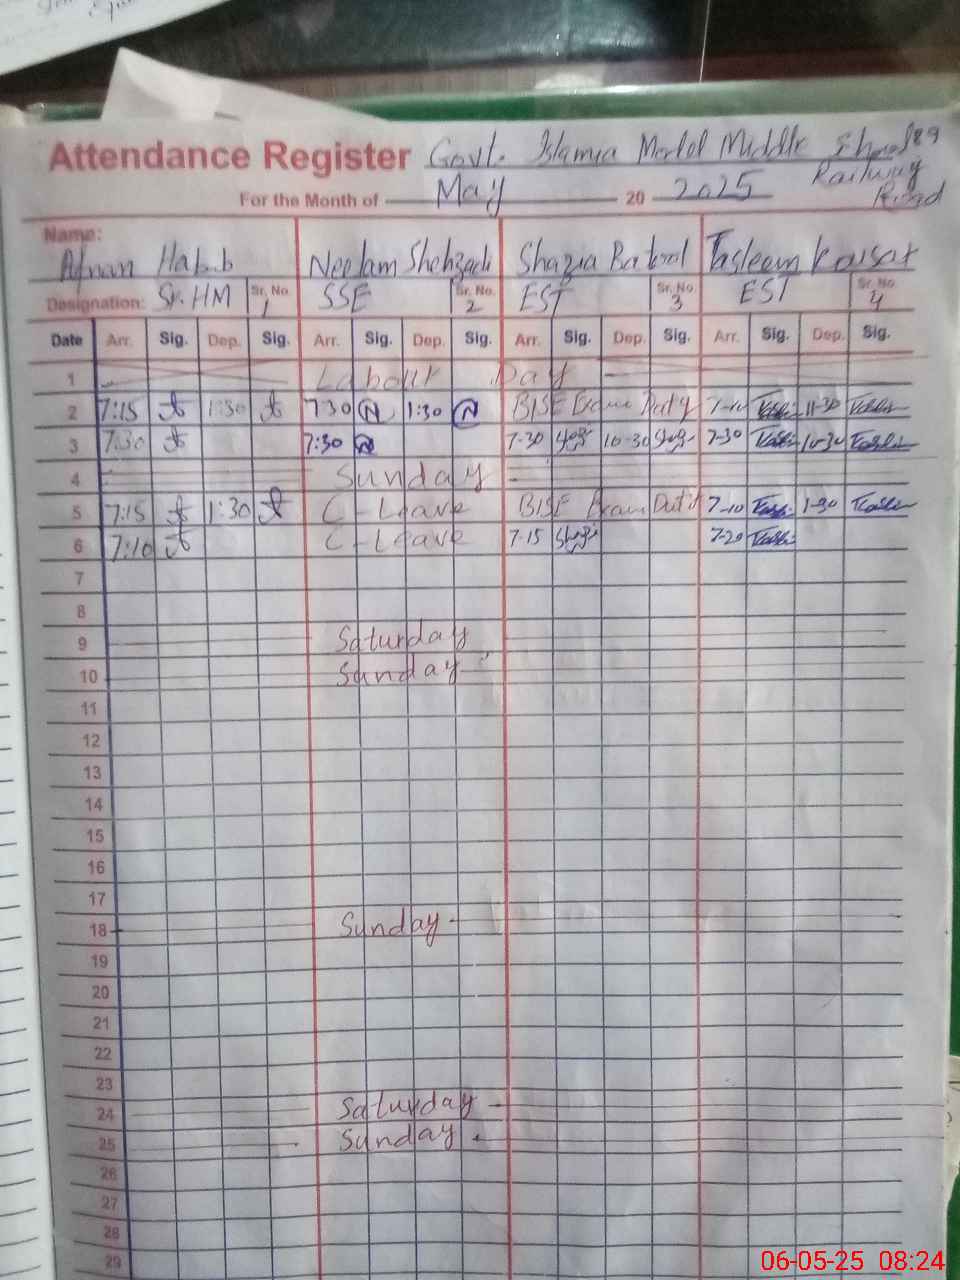 Attendance Register Govt. Islamia Model Middle School
Railway
Road
For the Month of May 20 2025
Name:
Afnan Habib Neelam Shehzadi Shazia Batool Tasleem Kausar
Designation: Sr. HM Sr. No. 1 SSE Sr. No. 2 EST Sr. No. 3 EST Sr. No. 4
Date Arr. Sig. Dep. Sig. Arr. Sig. Dep. Sig. Arr. Sig. Dep. Sig. Arr. Sig. Dep. Sig.
1 Labour Day
2 7:15 1:30 7:30 N 1:30 N BISE Exam Duty 7-10 11-30
3 7:30 7:30 N 7-30 10-30 7-30 10-30
4 Sunday
5 7:15 1:30 C-Leave BISE Exam Duty 7-10 1-30
6 7:10 C-Leave 7-15 7-20
7
8
9 Saturday
10 Sunday
11
12
13
14
15
16
17
18 Sunday
19
20
21
22
23
24 Saturday
25 Sunday
26
27
28
29
06-05-25 08:24